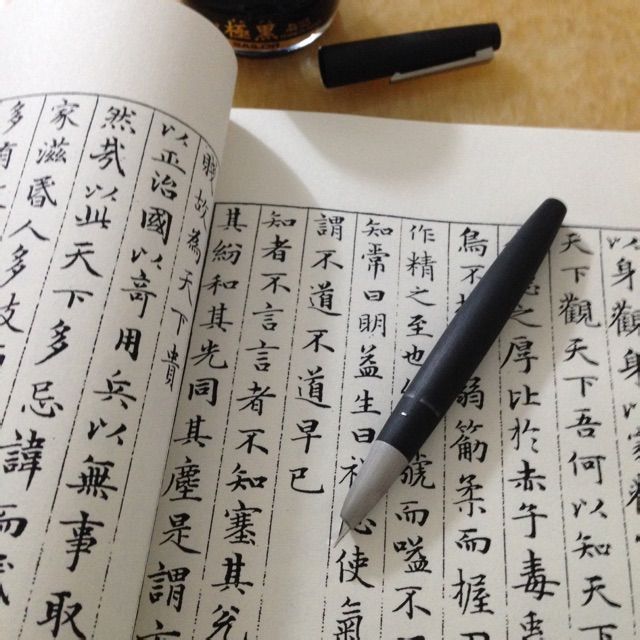 極黑
以身觀身以
天下觀天下吾何以知天下
之厚比於赤子毒
鳥不 弱筋柔而握
作精之至也 號而嗌不
知常曰明益生曰祥心使氣
謂不道不道早已
知者不言言者不知塞其兌
其紛和其光同其塵是謂
故為天下貴
以正治國以奇用兵以無事取
然哉以此天下多忌諱而
家滋昏人多技
多